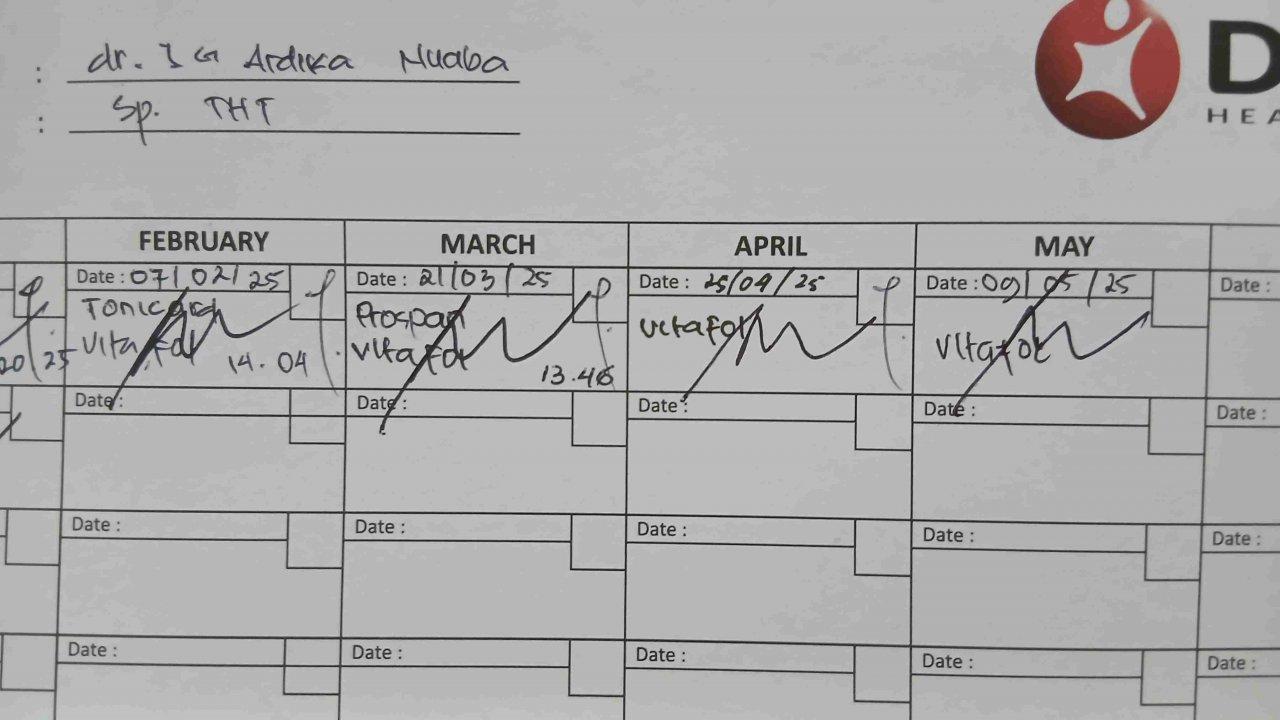 : dr. I G Ardika Nuaba
: Sp. THT
D
HEA
FEBRUARY MARCH APRIL MAY
Date : 07/02/25 Date : 21/03/25 Date : 25/04/25 Date : 09/05/25 Date :
Tonicard Prospan Vitafol Vitafol
Vitafol Vitafol
20/25 14.04 13.46
Date : Date : Date : Date : Date :
Date : Date : Date : Date : Date :
Date : Date : Date : Date : Date :